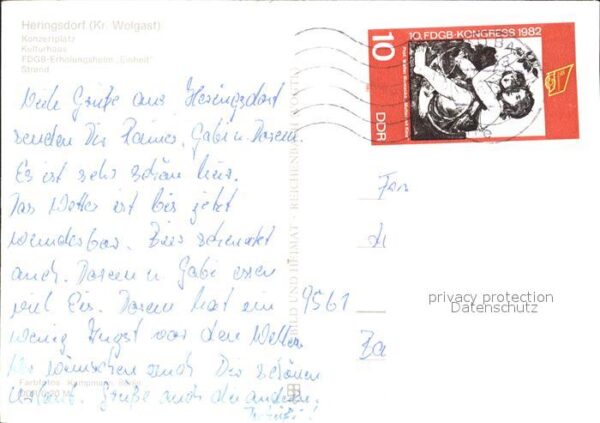 Heringsdorf (Kr. Wolgast)
Konzertplatz
Kulturhaus
FDGB-Erholungsheim „Einheit"
Strand
Viele Grüße aus Heringsdorf
senden Dir Rainer, Gabi u. Doreen.
Es ist sehr schön hier.
Das Wetter ist bis jetzt
wunderbar. Bier schmeckt
auch. Doreen u. Gabi essen
viel Eis. Doreen hat ein
wenig Angst vor den Wellen.
Wir wünschen auch Dir schönen
Urlaub. Grüße auch die anderen.
Tschüß!
10. FDGB-KONGRESS 1982
10
DDR
BILD UND HEIMAT REICHENBACH
9561
privacy protection
Datenschutz